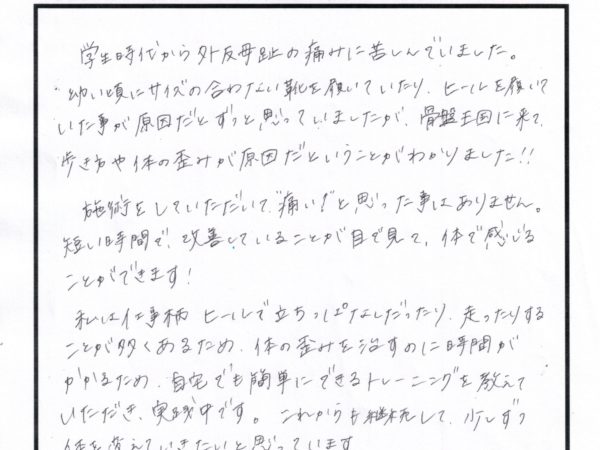 学生時代から外反母趾の痛みに苦しんでいました。
幼い頃にサイズの合わない靴を履いていたり、ヒールを履いて
いた事が原因だとずっと思っていましたが、骨盤王国に来て、
歩き方や体の歪みが原因だということがわかりました!!
施術をしていただいて、"痛い!"と思った事はありません。
短い時間で、改善していることが目で見て、体で感じる
ことができます!
私は仕事柄 ヒールで立ちっぱなしだったり、走ったりする
ことが多くあるため、体の歪みを治すのに時間が
かかるため、自宅でも簡単にできるトレーニングを教えて
いただき、実践中です。これからも継続して、少しずつ
体を変えていきたいと思っています